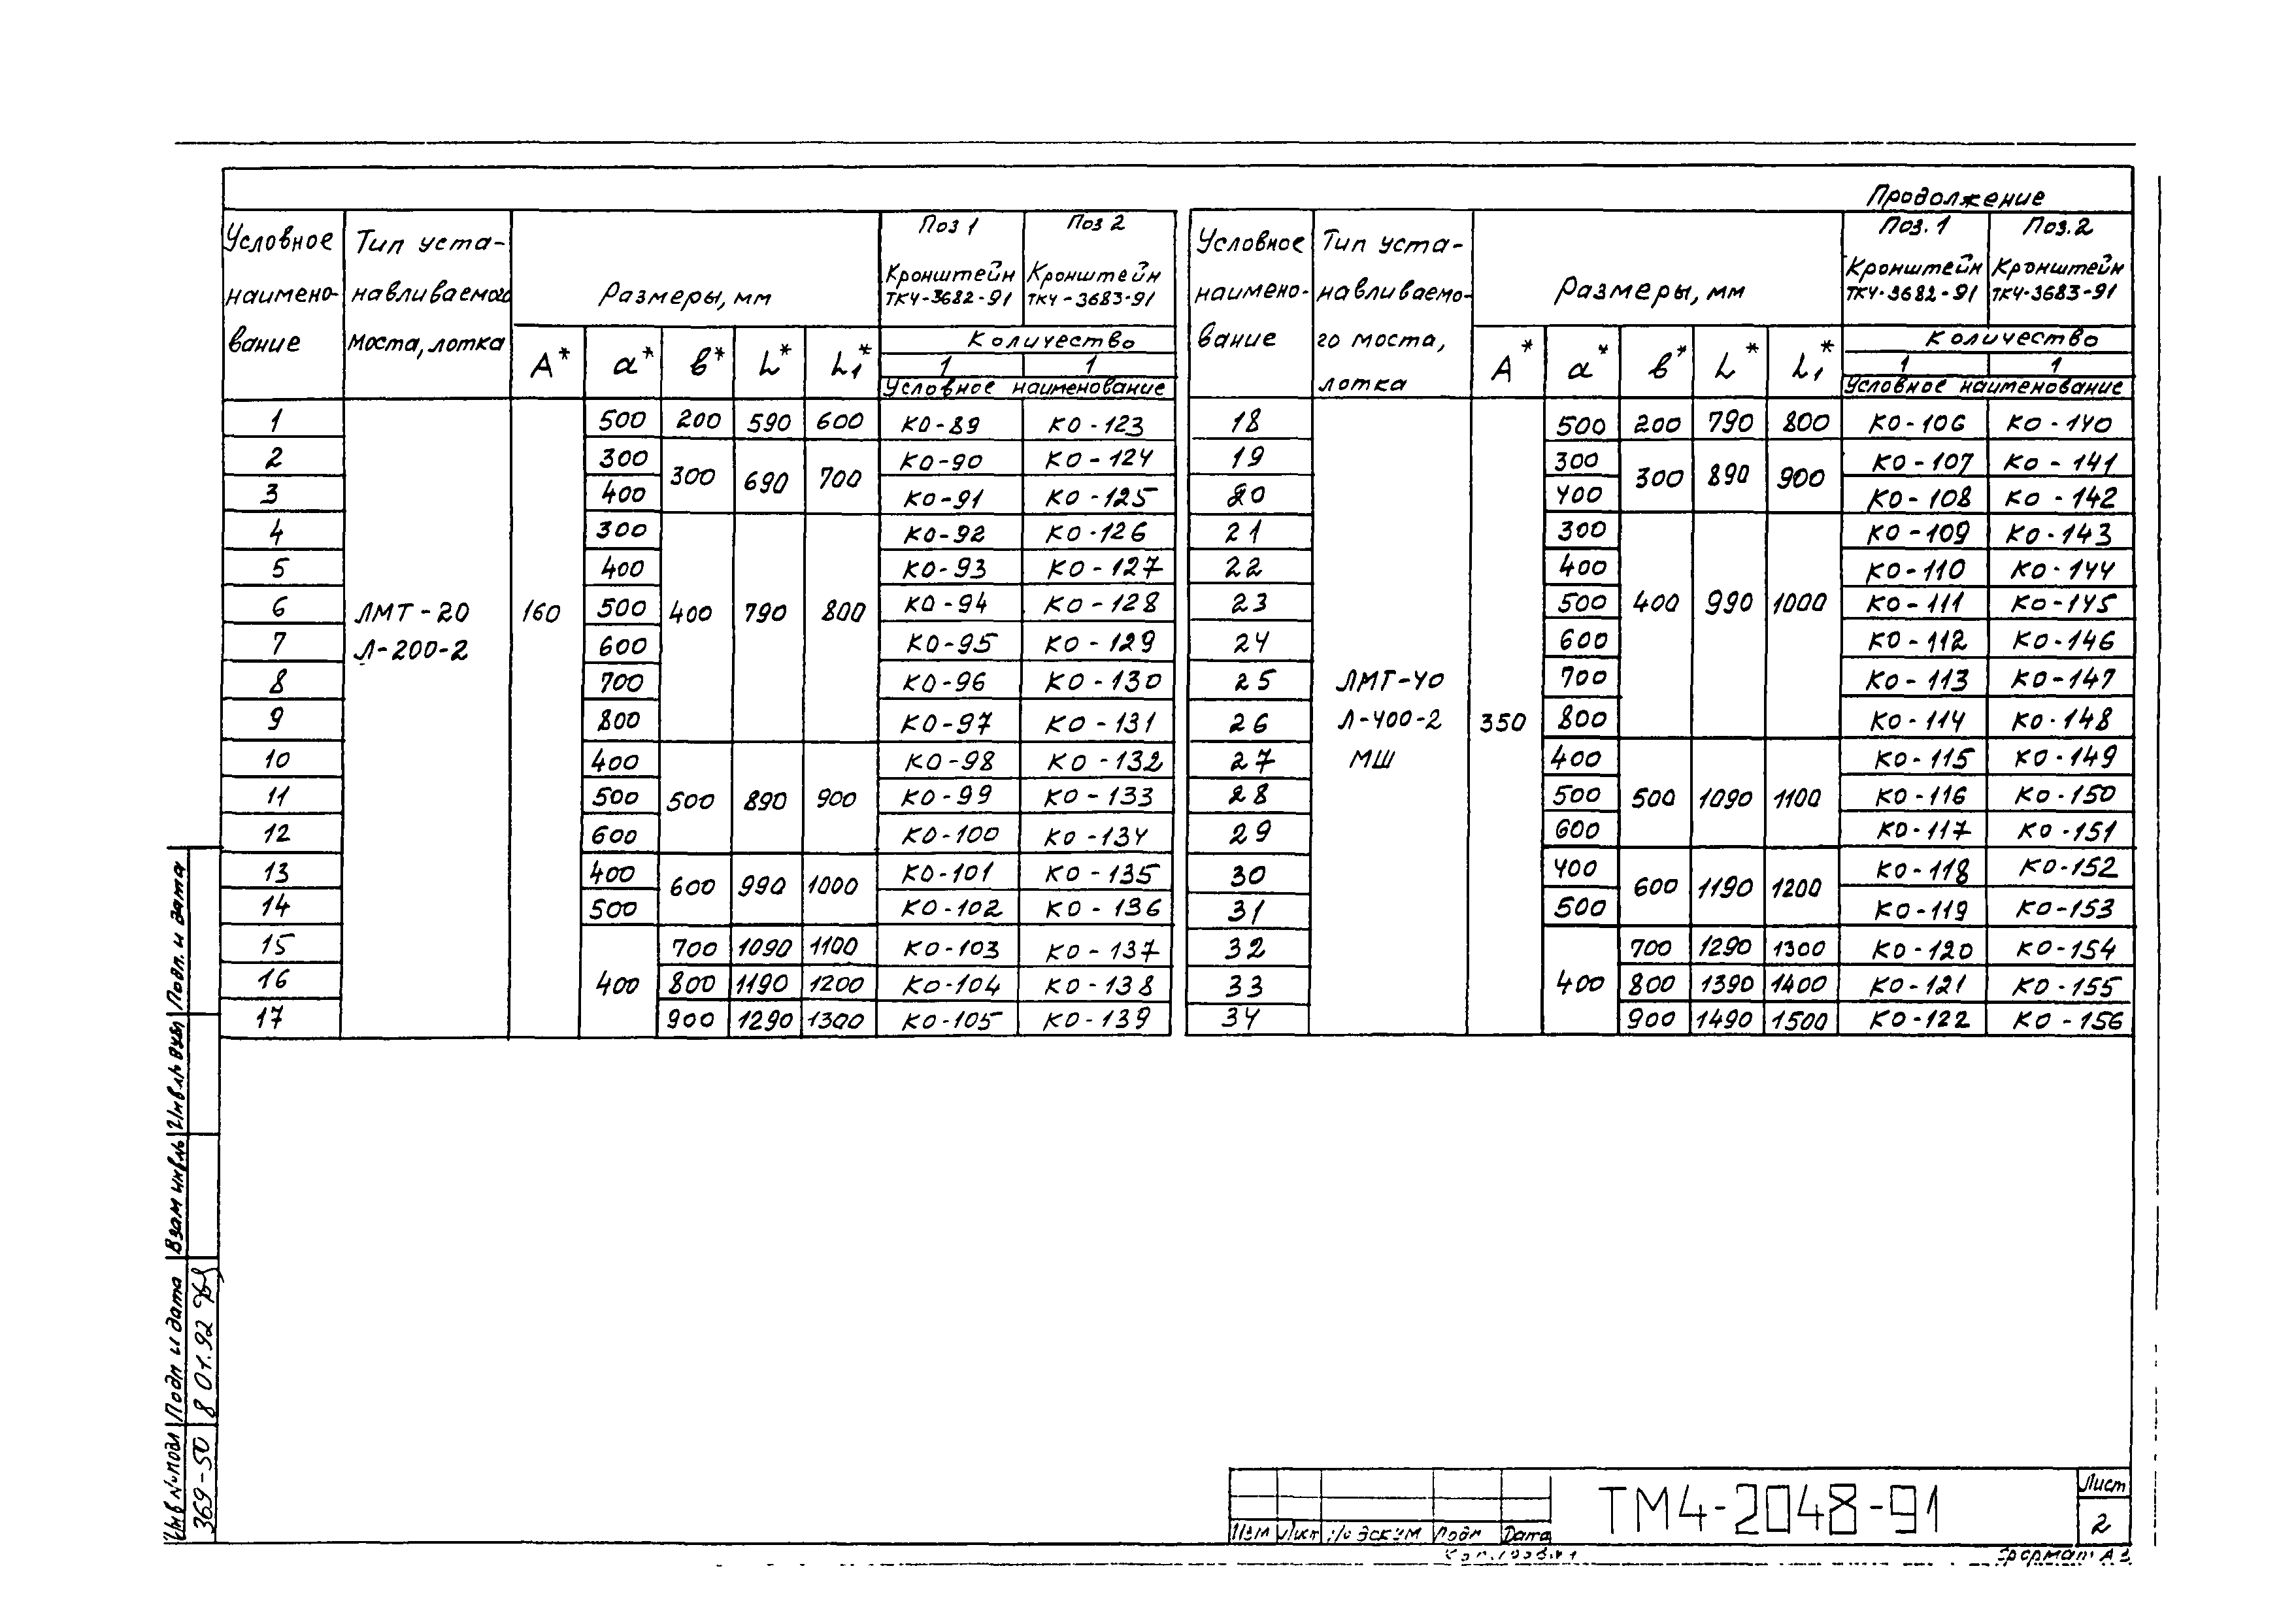 Продолжение
Условное наимено- вание | Тип уста- навливаемого моста, лотка | Размеры, мм | Поз 1 Кронштейн ТК4-3682-91 | Поз 2 Кронштейн ТК4-3683-91
А* | а* | в* | L* | L1* | Количество
1 | 1
Условное наименование
1 | 500 | 200 | 590 | 600 | КО-89 | КО-123
2 | 300 | 300 | 690 | 700 | КО-90 | КО-124
3 | 400 | КО-91 | КО-125
4 | 300 | КО-92 | КО-126
5 | 400 | КО-93 | КО-127
6 | ЛМТ-20 | 160 | 500 | 400 | 790 | 800 | КО-94 | КО-128
7 | Л-200-2 | 600 | КО-95 | КО-129
8 | 700 | КО-96 | КО-130
9 | 800 | КО-97 | КО-131
10 | 400 | КО-98 | КО-132
11 | 500 | 500 | 890 | 900 | КО-99 | КО-133
12 | 600 | КО-100 | КО-134
13 | 400 | 600 | 990 | 1000 | КО-101 | КО-135
14 | 500 | КО-102 | КО-136
15 | 700 | 1090 | 1100 | КО-103 | КО-137
16 | 400 | 800 | 1190 | 1200 | КО-104 | КО-138
17 | 900 | 1290 | 1300 | КО-105 | КО-139
Условное наимено- вание | Тип уста- навливаемо- го моста, лотка | Размеры, мм | Поз. 1 Кронштейн ТК4-3682-91 | Поз. 2 Кронштейн ТК4-3683-91
А* | а* | в* | L* | L1* | Количество
1 | 1
Условное наименование
18 | 500 | 200 | 790 | 800 | КО-106 | КО-140
19 | 300 | 300 | 890 | 900 | КО-107 | КО-141
20 | 400 | КО-108 | КО-142
21 | 300 | КО-109 | КО-143
22 | 400 | КО-110 | КО-144
23 | 500 | 400 | 990 | 1000 | КО-111 | КО-145
24 | 600 | КО-112 | КО-146
25 | ЛМТ-40 | 700 | КО-113 | КО-147
26 | Л-400-2 | 350 | 800 | КО-114 | КО-148
27 | МШ | 400 | КО-115 | КО-149
28 | 500 | 500 | 1090 | 1100 | КО-116 | КО-150
29 | 600 | КО-117 | КО-151
30 | 400 | 600 | 1190 | 1200 | КО-118 | КО-152
31 | 500 | КО-119 | КО-153
32 | 700 | 1290 | 1300 | КО-120 | КО-154
33 | 400 | 800 | 1390 | 1400 | КО-121 | КО-155
34 | 900 | 1490 | 1500 | КО-122 | КО-156
Подп. и дата
Инв № дубл
Взам инв №
Подп и дата
8 01.92
Инв № подл
369-50
Изм Лист № докум Подп Дата
ТМ4-2048-91
Лист
2
Формат А3